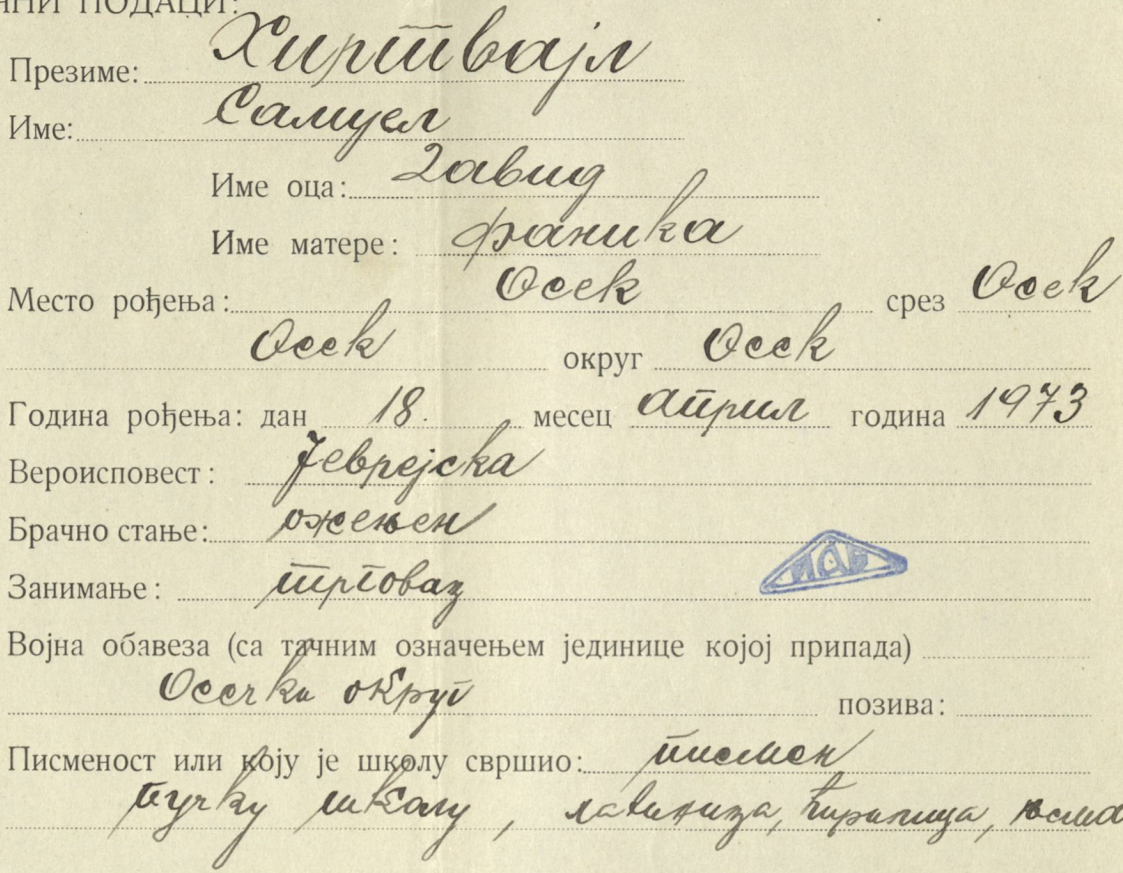 ЧНИ ПОДАЦИ:
Презиме: Хиртвајл
Име: Самуел
Име оца: Давид
Име матере: Фаника
Место рођења: Осек срез Осек
Осек округ Осек
Година рођења: дан 18. месец април година 1973
Вероисповест: Јеврејска
Брачно стање: ожењен
Занимање: трговац
Војна обавеза (са тачним означењем јединице којој припада)
Осечки округ позива:
Писменост или коју је школу свршио: писмен
пучку школу, латиница, ћирилица,